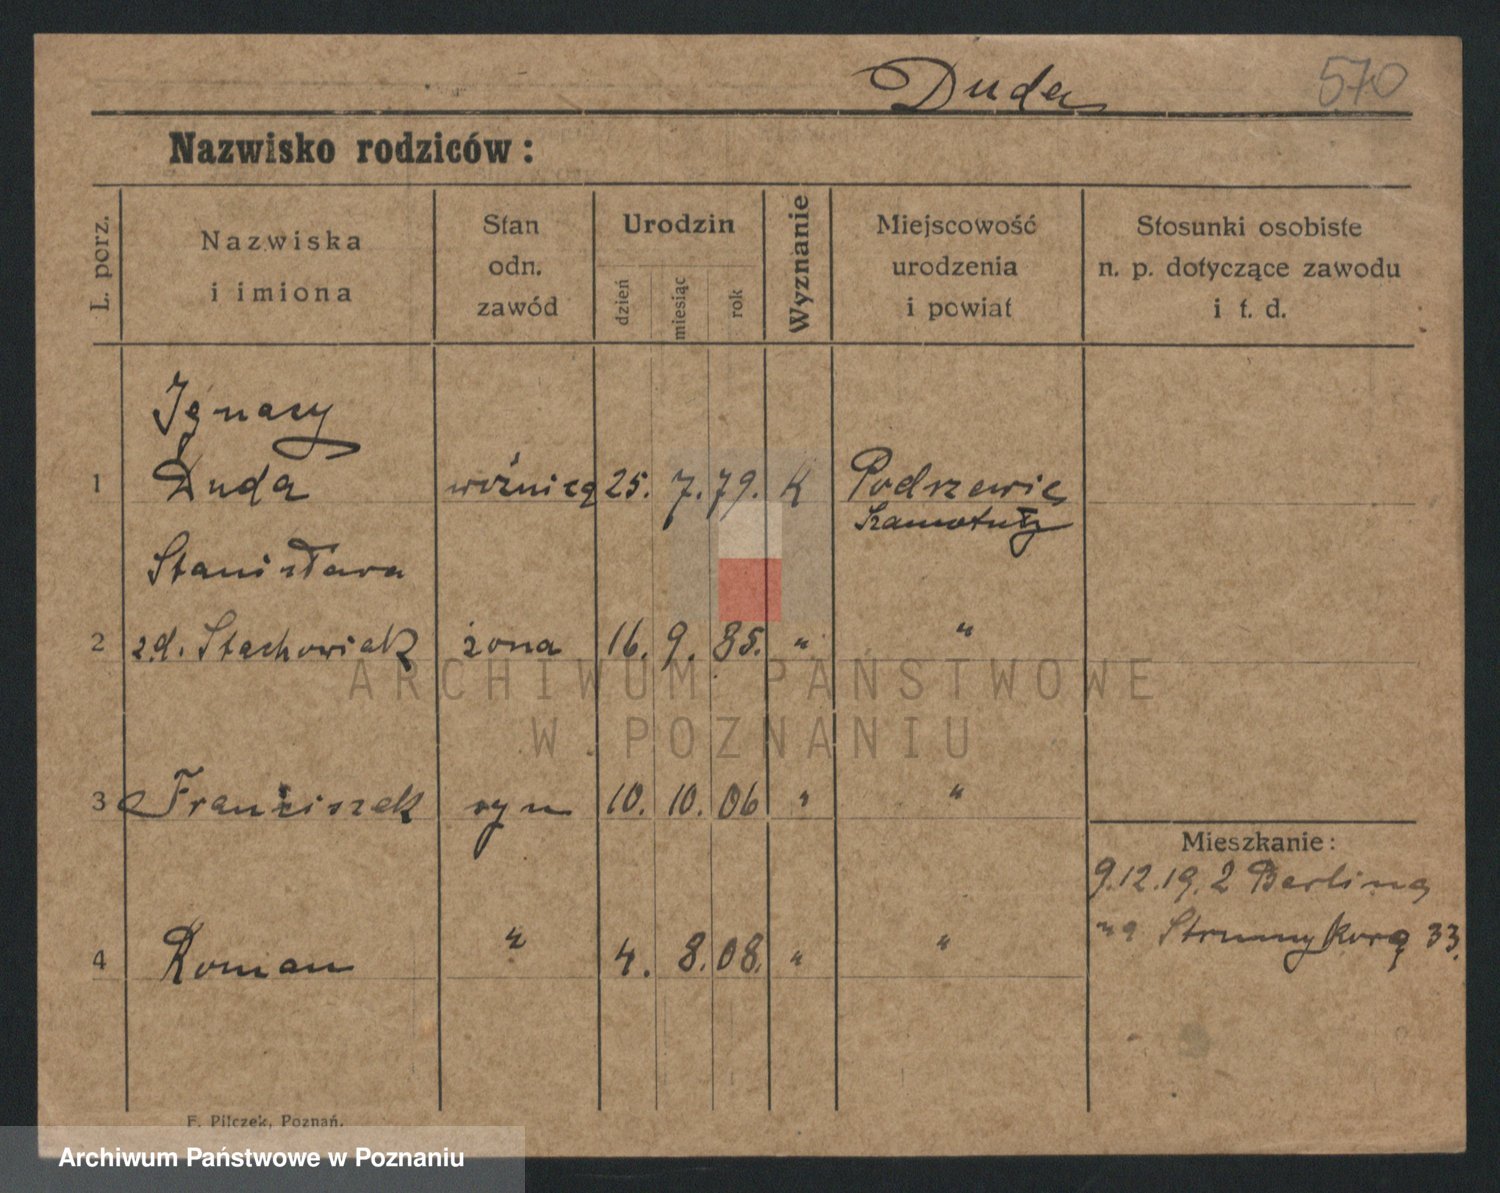 Duda 570
Nazwisko rodziców:
L. porz.
Nazwiska
i imiona
Stan
odn.
zawód
Urodzin
dzień
miesiąc
rok
Wyznanie
Miejscowość
urodzenia
i powiat
Stosunki osobiste
n. p. dotyczące zawodu
i t. d.
Ignacy
1 Duda woźnicą 25. 7. 79. K Podrzewie
Szamotuły
Stanisława
2 zd. Stachowiak żona 16. 9. 85. " "
3 Franciszek syn 10. 10. 06 " "
Mieszkanie:
9.12.19. z Berlina
na Strumykową 33.
4 Roman " 4. 8. 08. " "
F. Pilczek, Poznań.
ARCHIWUM PAŃSTWOWE
W POZNANIU
Archiwum Państwowe w Poznaniu